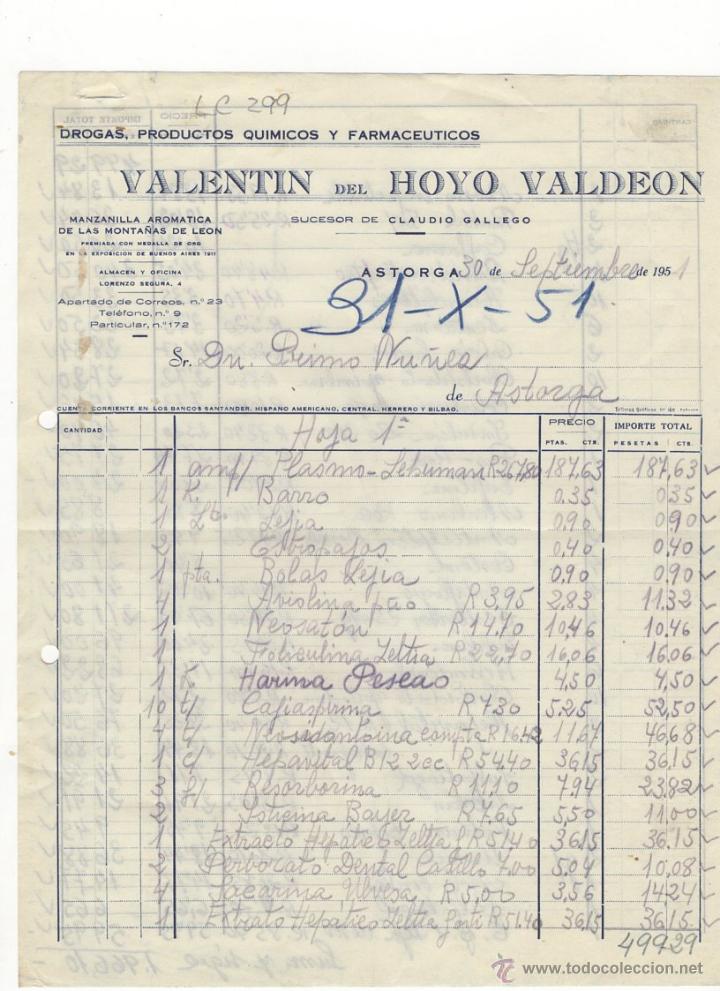 LC 299
DROGAS, PRODUCTOS QUIMICOS Y FARMACEUTICOS
VALENTIN DEL HOYO VALDEON
MANZANILLA AROMATICA
DE LAS MONTAÑAS DE LEON
SUCESOR DE CLAUDIO GALLEGO
PREMIADA CON MEDALLA DE ORO
EN LA EXPOSICION DE BUENOS AIRES 1911
ALMACEN Y OFICINA
LORENZO SEGURA, 4
ASTORGA 30 de Septiembre de 1951
Apartado de Correos, n.º 23
Teléfono, n.º 9
Particular, n.º 172
31-X-51
Sr. Dn. Primo Nuñez
de Astorga
CUENTA CORRIENTE EN LOS BANCOS SANTANDER, HISPANO AMERICANO, CENTRAL, HERRERO Y BILBAO.
CANTIDAD Hoja 1ª PRECIO IMPORTE TOTAL
PTAS. CTS. PESETAS CTS.
1 amp/ Plasmo- R 267,80 187,63 187,63
1 K. Barro 0,35 0,35
1 Lt. Lejia 0,90 0,90
2 Estropajos 0,40 0,40
1 pta. Bolas Lejia 0,90 0,90
4 Aviolina R 3,95 2,83 11,32
1 Neosatón R 14,70 10,46 10,46
1 Foliculina Zeltia R 22,70 16,06 16,06
1 K. Harina Pescao 4,50 4,50
10 t/ Cafiaspirina R 7,30 5,25 52,50
4 t/ Neosidantoina compta R 16,42 11,67 46,68
1 c/ Hepavital B12 2cc R 54,40 36,15 36,15
3 f/ Resorborina R 11,10 7,94 23,82
2 Isticina Bayer R 7,65 5,50 11,00
1 Extracto Hepático Zeltia f R 51,40 36,15 36,15
2 Perborato Dental Castillo 7,00 5,04 10,08
4 Sacarina R 5,00 3,56 14,24
1 Extrato Hepatico Zeltia forti R 51,40 36,15 36,15
499,29
www.todocoleccion.net